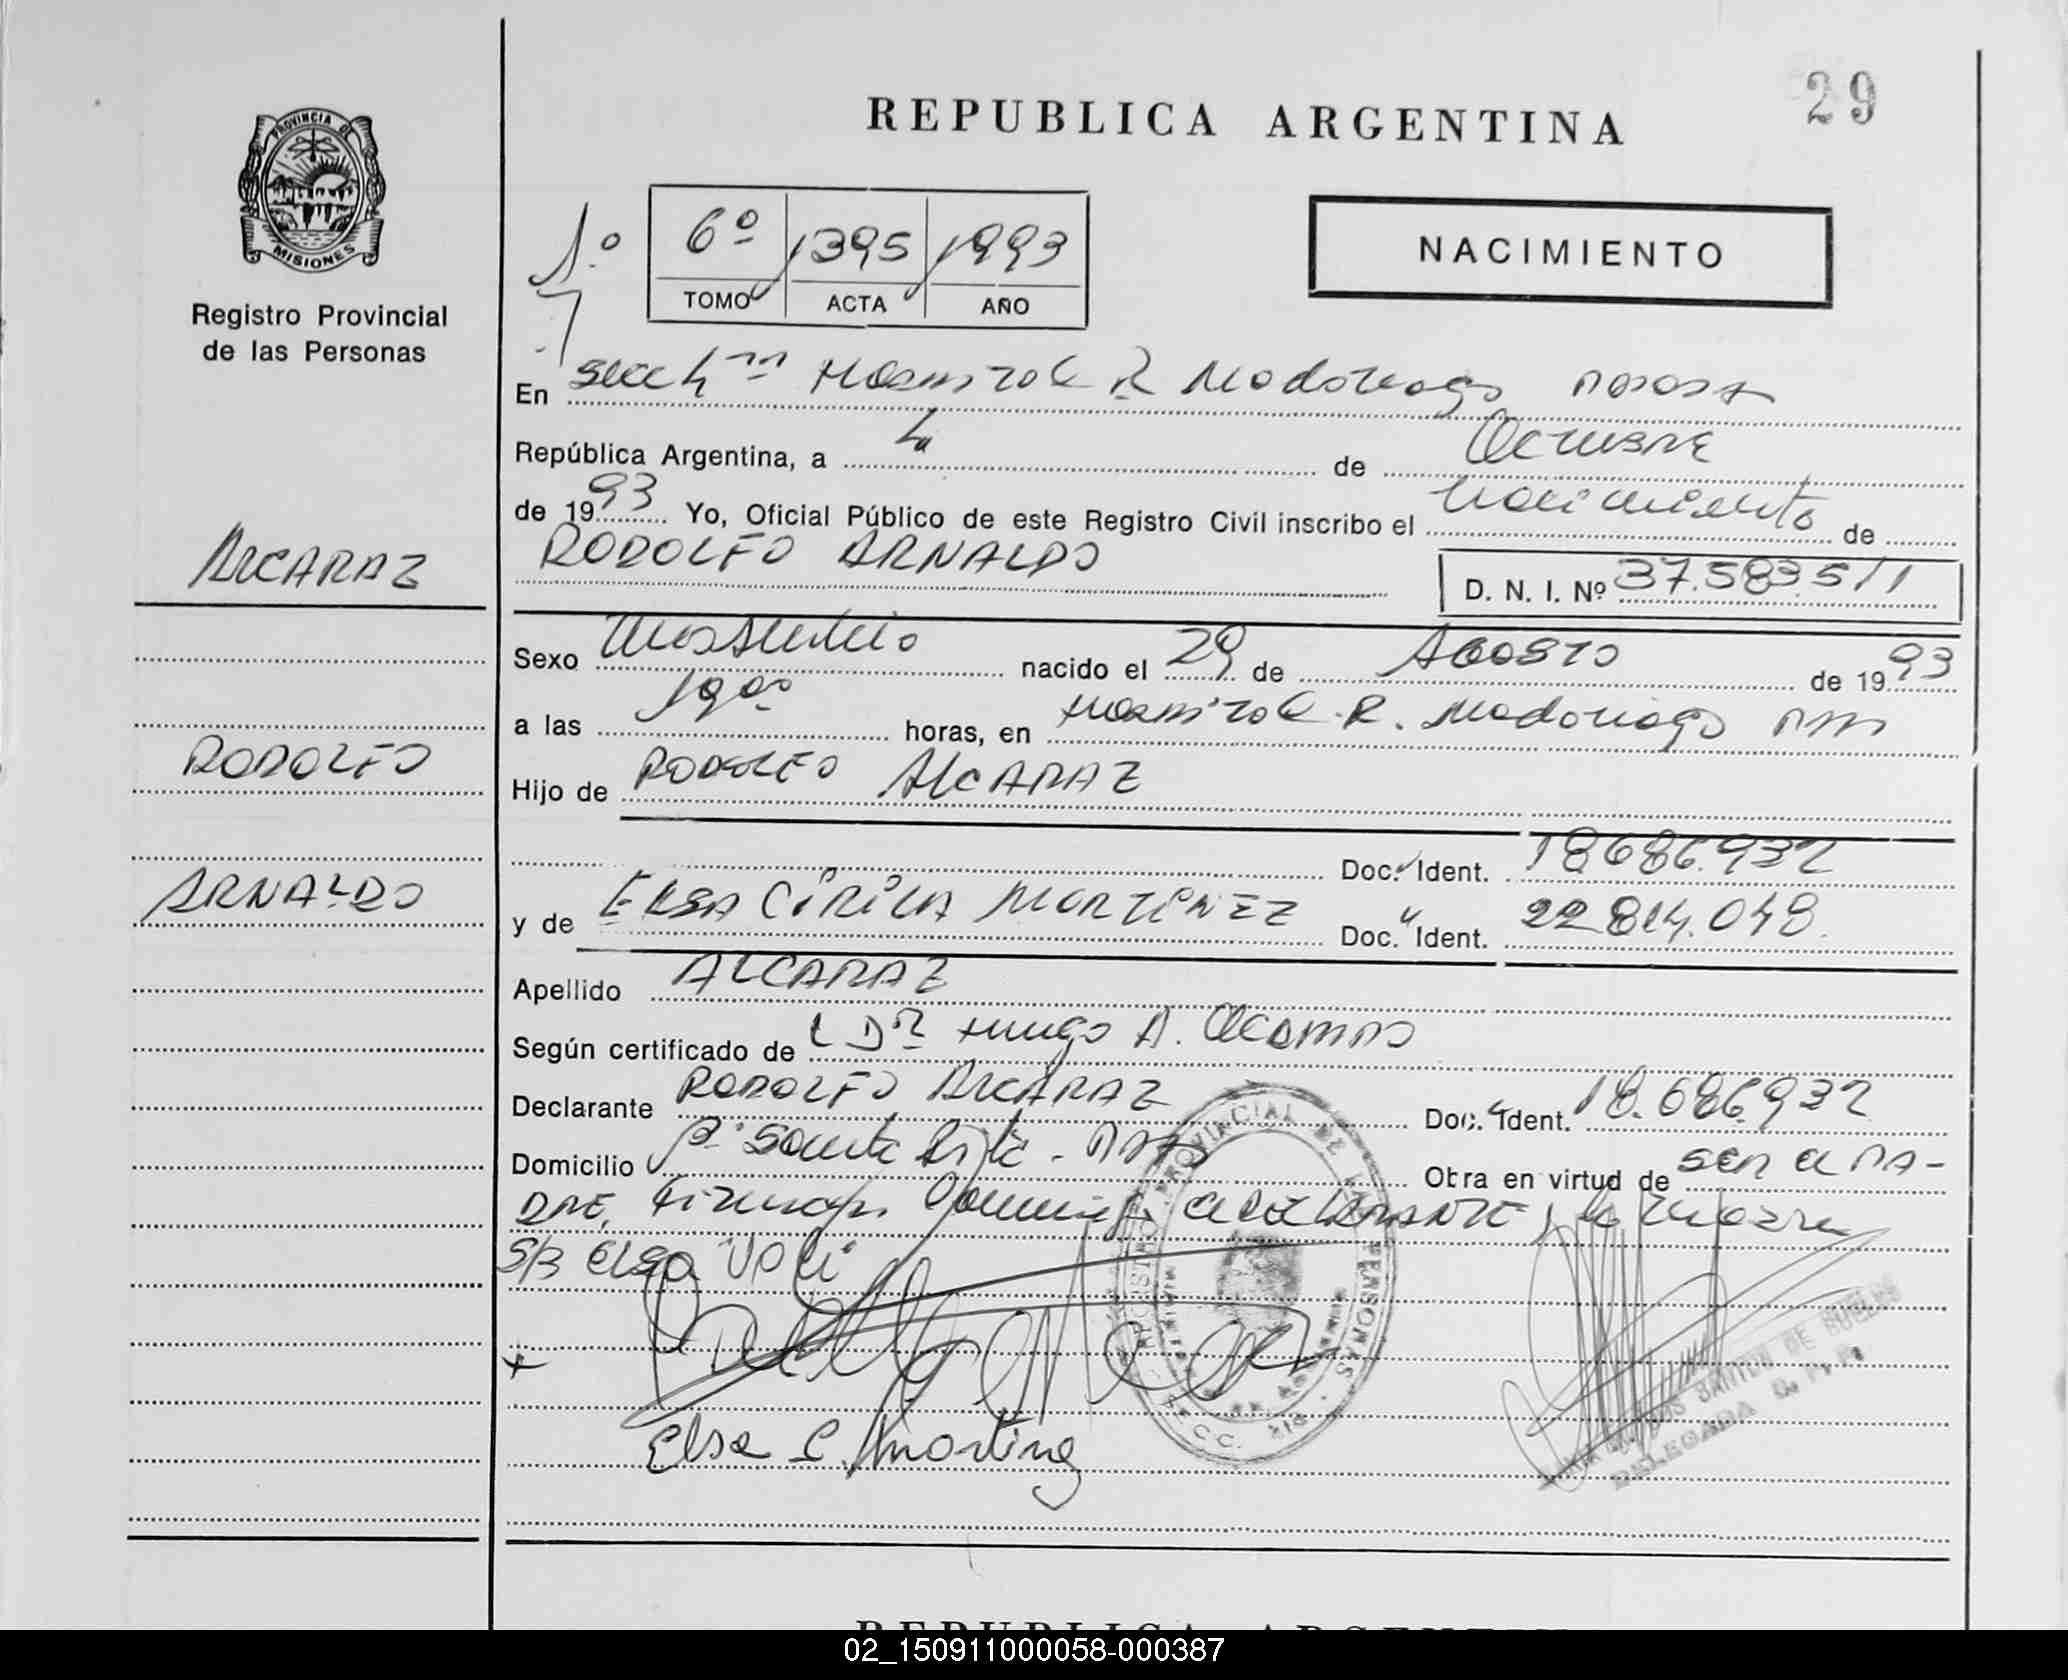 29
REPUBLICA ARGENTINA
PROVINCIA DE
MISIONES
Registro Provincial
de las Personas
1.º
6º 1395 1993
TOMO ACTA AÑO
NACIMIENTO
En Hospital R Madariaga
República Argentina, a 4 de Octubre
de 1993 Yo, Oficial Público de este Registro Civil inscribo el nacimiento de
ALCARAZ
RODOLFO ARNALDO
D. N. I. Nº 37.583.511
Sexo masculino nacido el 29 de AGOSTO de 1993
a las 19 00 horas, en Hospital R. Madariaga
RODOLFO
Hijo de RODOLFO ALCARAZ
Doc. Ident. 18686.932
ARNALDO
y de ELSA CIRILA MARTINEZ Doc. Ident. 22814.048
Apellido ALCARAZ
Según certificado de Dr Hugo A. Ocampo
Declarante RODOLFO ALCARAZ Doc. Ident. 18.686932
Domicilio Bº Santa Rita - Obra en virtud de ser el PA-
DRE, DECLARANTE y la
S/B Elsa "Vale"
Elsa C. Martinez
REGISTRO PROVINCIAL DE LAS PERSONAS
DELEGADA
REPUBLICA ARGENTINA
02_150911000058-000387